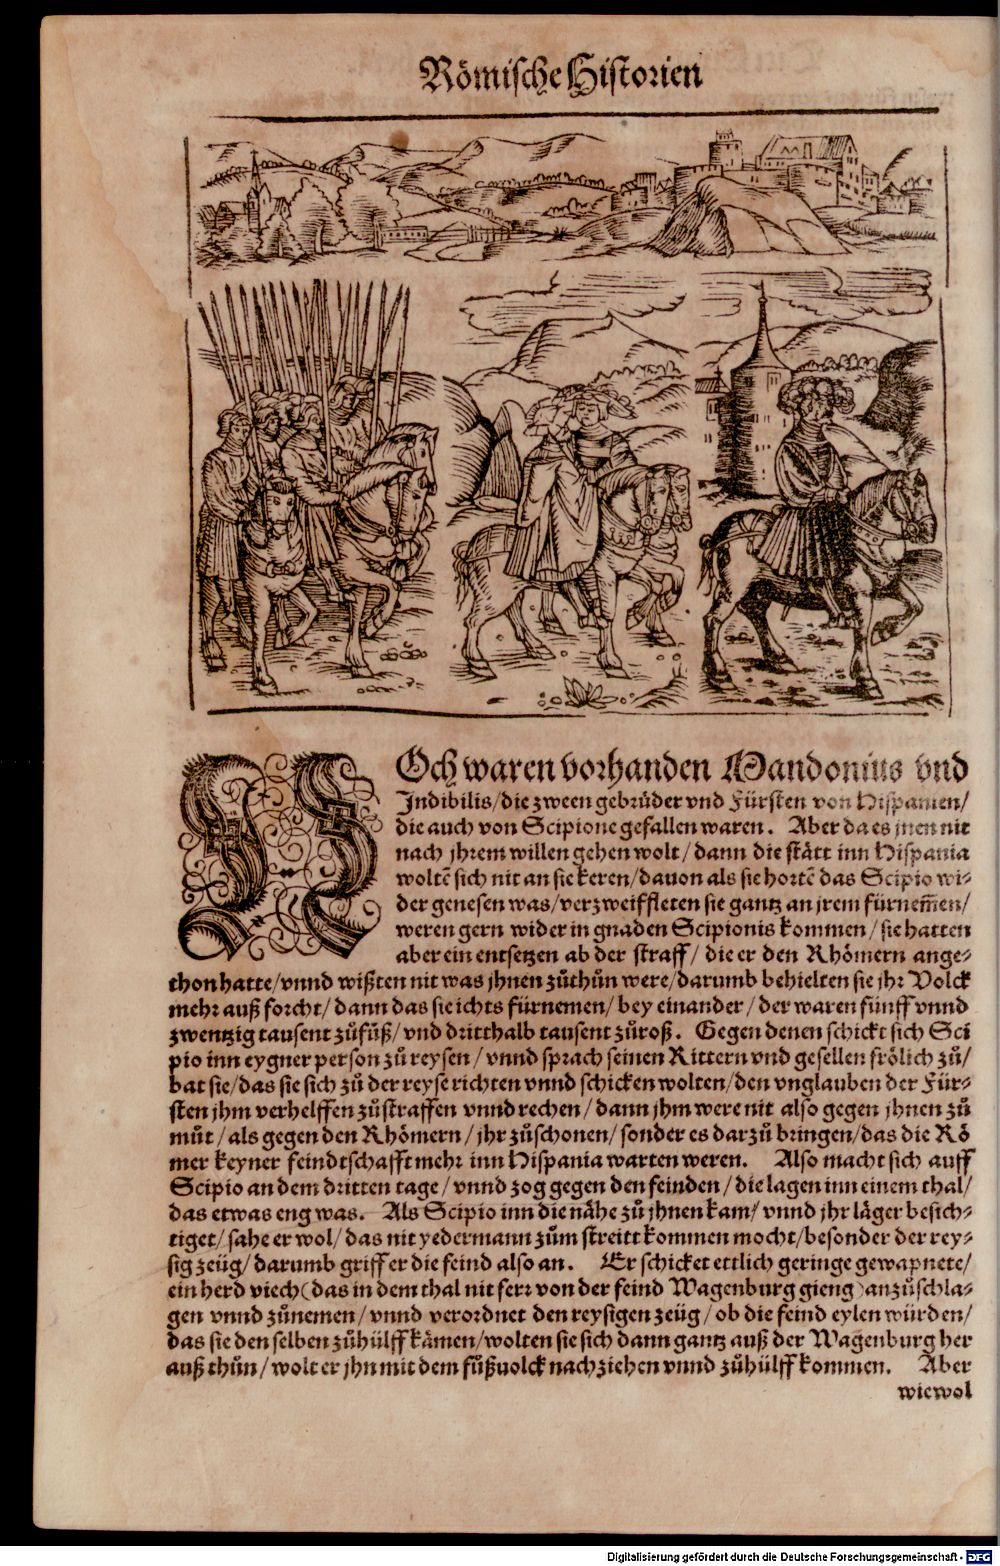 Römische Historien
NOch waren vorhanden Mandonius vnd
Indibilis/die zween gebrüder vnd Fürsten von Hispanien/
die auch von Scipione gefallen waren. Aber da es jnen nit
nach jhrem willen gehen wolt/dann die stätt inn Hispania
woltẽ sich nit an sie keren/davon als sie hortẽ das Scipio wi-
der genesen was/verzweiffleten sie gantz an jrem fürnem̃en/
weren gern wider in gnaden Scipionis kommen/sie hatten
aber ein entsetzen ab der straff/die er den Rhömern ange-
thon hatte/vnnd wißten nit was jhnen zůthůn were/darumb behielten sie jhr Volck
mehr auß forcht/dann das sie ichts fürnemen/bey einander/der waren fünff vnnd
zwentzig tausent zůfůß/vnd dritthalb tausent zůroß. Gegen denen schickt sich Sci
pio inn eygner person zů reysen/vnnd sprach seinen Rittern vnd gesellen frölich zů/
bat sie/das sie sich zů der reyse richten vnnd schicken wolten/den vnglauben der Für-
sten jhm verhelffen zůstraffen vnnd rechen/dann jhm were nit also gegen jhnen zů
můt/als gegen den Rhömern/jhr zůschonen/sonder es darzů bringen/das die Rö
mer keyner feindtschafft mehr inn Hispania warten weren. Also macht sich auff
Scipio an dem dritten tage/vnnd zog gegen den feinden/die lagen inn einem thal/
das etwas eng was. Als Scipio inn die nähe zů jhnen kam/vnnd jhr läger besich-
tiget/sahe er wol/das nit yedermann zům streitt kommen mocht/besonder der rey-
sig zeüg/darumb griff er die feind also an. Er schicket ettlich geringe gewapnete/
ein herd viech(das in dem thal nit ferr von der feind Wagenburg gieng)anzůschla-
gen vnnd zůnemen/vnnd verordnet den reysigen zeüg/ob die feind eylen würden/
das sie den selben zůhülff kämen/wolten sie sich dann gantz auß der Wagenburg her
auß thůn/wolt er jhn mit dem fůßvolck nachziehen vnnd zůhülff kommen. Aber
wiewol
Digitalisierung gefördert durch die Deutsche Forschungsgemeinschaft - DFG